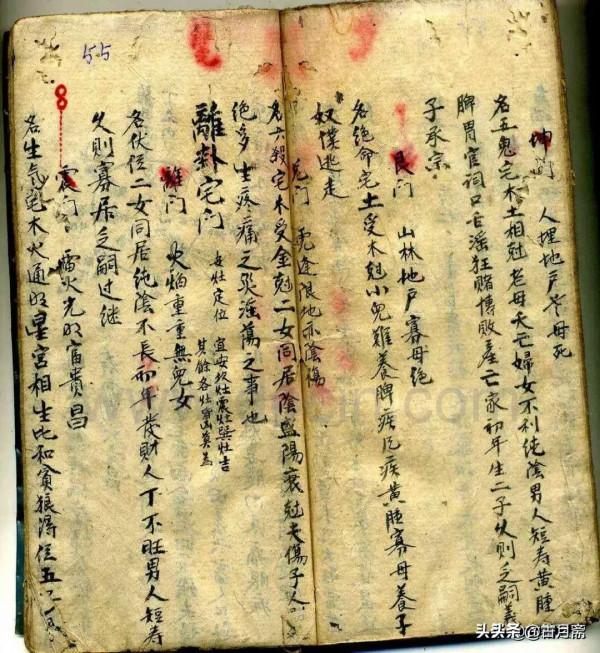 55
坤門　人埋地戶老母死
名五鬼宅木土相尅老母夭亡婦女不利純陰男人短寿黃腫
脾胃官詞口舌淫狂賭博敗產亡家初年生二子久則乏嗣義
子承宗
艮门　山林地戶寡母絕
名絕命宅土受木尅小兒難养脾疾瓦疾黃腫寡母養子
奴僕逃走
兌门　虎逢　地亦陰傷
名六殺宅木受金尅二女同居陰盛陽衰尅夫傷子人
絕多生疼痛之災淫荡之事也
離卦宅门　女灶定位　宜安　灶震灶巽灶吉
其餘各灶　凶莫為
離门　火焰重重無兒女
名伏位二女同居純陰不長初年發財人丁不旺男人短寿
久則寡居乏嗣过继
震门　雷火光明富貴昌
名生气宅木火通明星宮相生比和貪狼得位五
头条 @古月斋